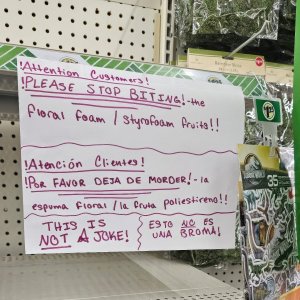 !Attention Customers!
!PLEASE STOP BITING!-the
floral foam / styrofoam fruits!!
!Atención Clientes!
!POR FAVOR DEJA DE MORDER!-la
espuma floral / la fruta poliestireno!!
THIS IS
NOT A JOKE!
ESTO NO ES
UNA BROMA!
35